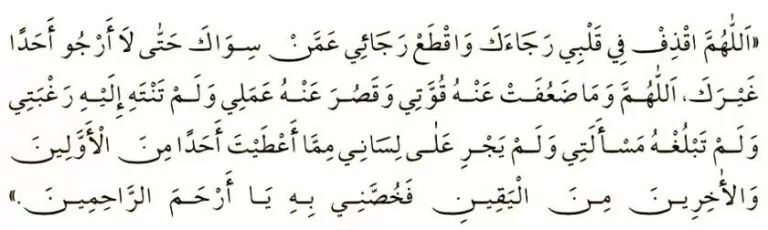 «اَللّٰهُمَّ اقْذِفْ فِي قَلْبِي رَجَاءَكَ وَاقْطَعْ رَجَائِي عَمَّنْ سِوَاكَ حَتّٰى لَا أَرْجُو أَحَدًا
غَيْرَكَ، اَللّٰهُمَّ وَمَا ضَعُفَتْ عَنْهُ قُوَّتِي وَقَصُرَ عَنْهُ عَمَلِي وَلَمْ تَنْتَهِ إِلَيْهِ رَغْبَتِي
وَلَمْ تَبْلُغْهُ مَسْأَلَتِي وَلَمْ يَجْرِ عَلٰى لِسَانِي مِمَّا أَعْطَيْتَ أَحَدًا مِنَ الْأَوَّلِينَ
وَالْأٰخِرِينَ مِنَ الْيَقِينِ فَخُصَّنِي بِهِ يَا أَرْحَمَ الرَّاحِمِينَ.»